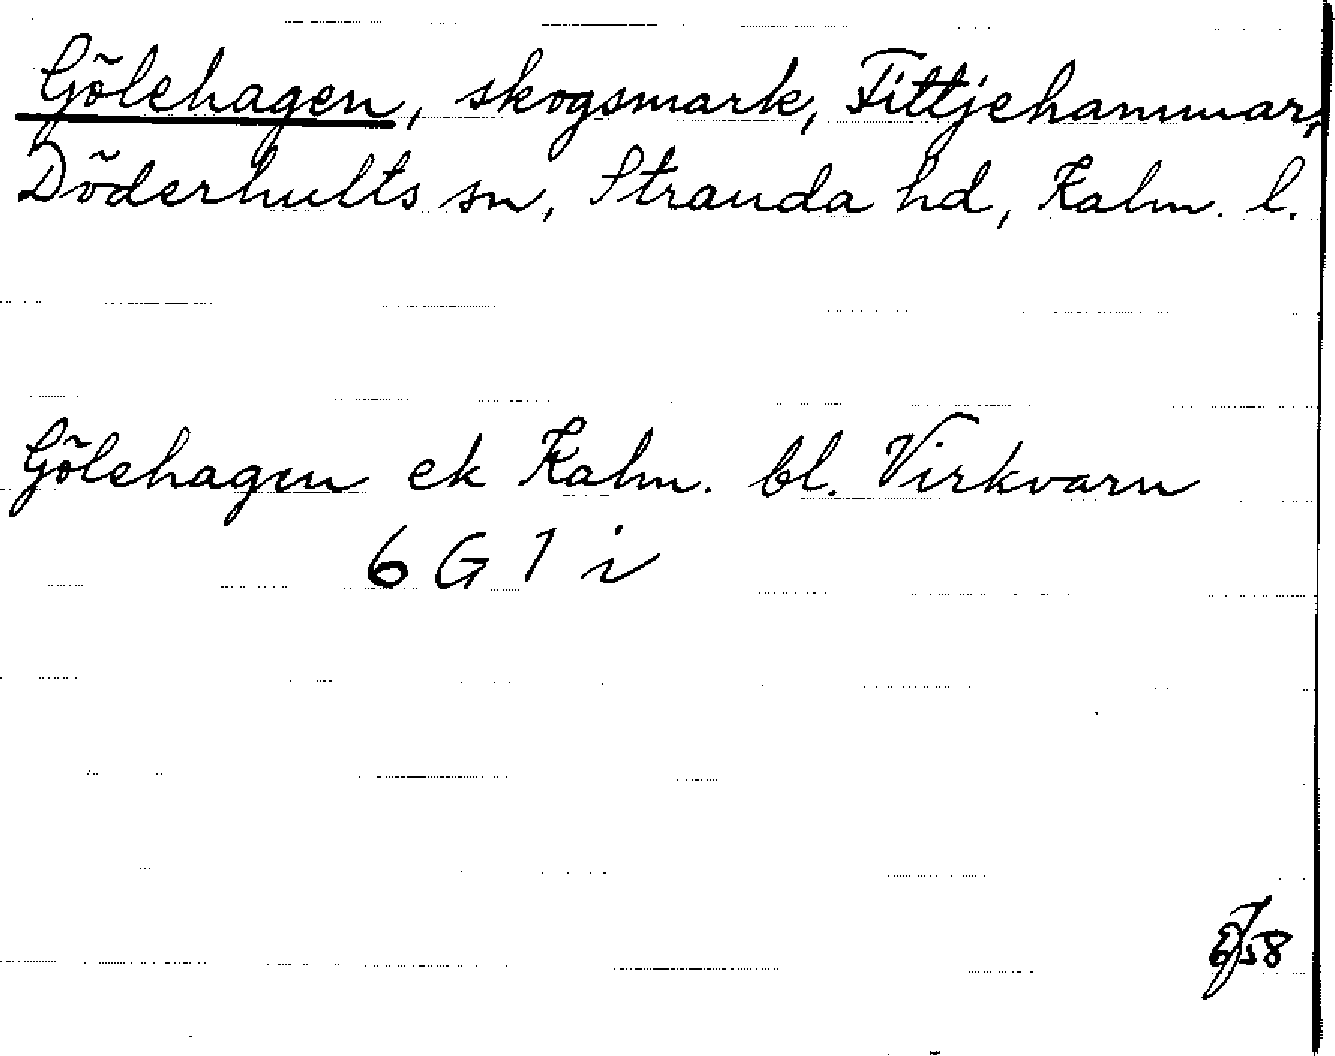 Gölehagen, skogsmark, Fittjehammar,
Döderhults sn, Stranda hd, Kalm. l.
Gölehagen ek Kalm. bl. Virkvarn
6 G 1 i
58